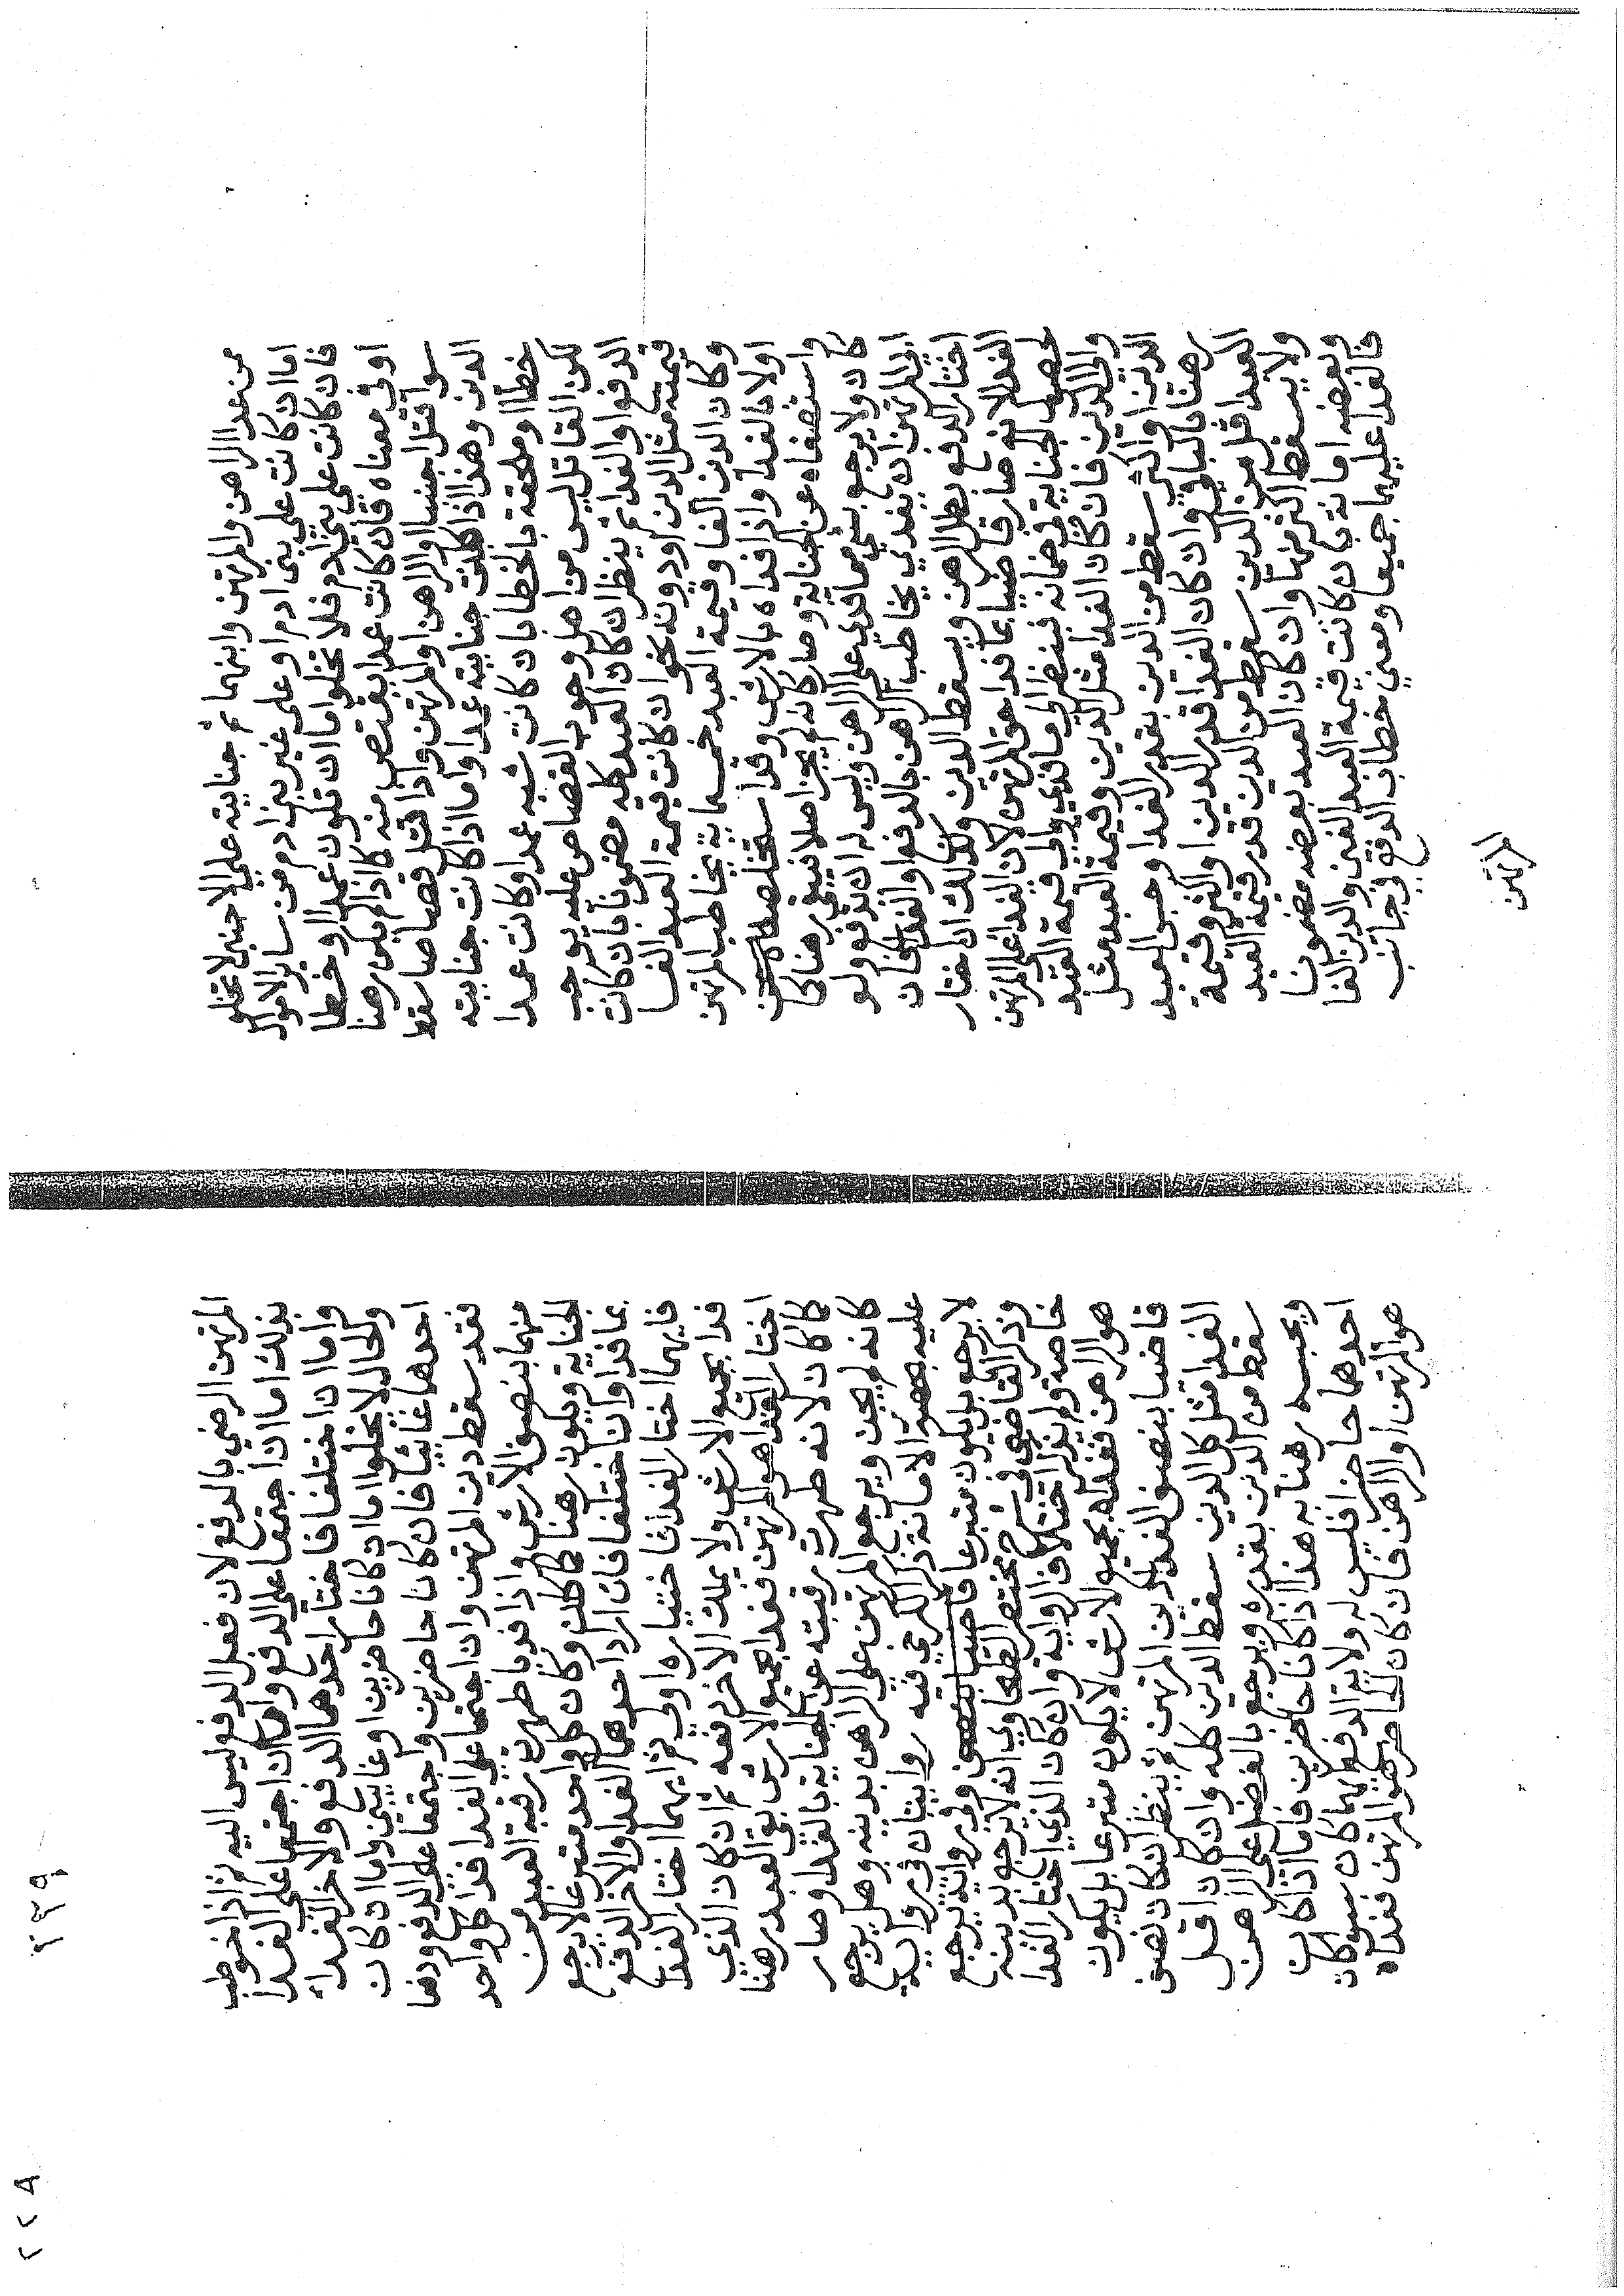 من عدا الراهن والمرتهن وابنهما ثم جنايته علي الاجنبي لا تخلو
اما ان كانت علي بني ادم او علي غير بني ادم من ساير الاموال
فان كانت علي بني ادم فلا تخلوا ما ان تكون عمدا او خطا
او في معناه فان كانت عمدا يقتص منه كما اذا لم يكن رهنا
سوا قتل اجنبيا او الراهن او المرتهن واذا قتل قصاصا سقط
الدين وهذا اذا كانت جنايته عمدا واما اذا كانت جنايته
خطا او ملحقة بالخطا بان كانت شبه عمد او كانت عمدا
لكن القاتل ليس من اهل وجوب القصاص عليه يوجب
الدفع او الفدا ثم ينظر ان كان العبد كله مضمونا بان كانت
قيمته مثل الدين او دونه نحو ان كانت قيمة العبد الفا
وكان الدين الفا او قيمة العبد خمسماية يخاطب المرتهن
اولا بالفدا واذا فداه بالارش فقد استخلصه
واستصفاه عن الجناية وصار كانه لم يجن اصلا فيبقي رهنا كما
كان ولا يرجع بشي مما فدي علي الراهن وليس له ان يدفع ولو
ابي المرتهن ان يفدي يخاطب الراهن بالدفع او الفدا فان
اختار الدفع بطل الرهن ويسقط الدين وكذلك ان اختار
الفدا لانه صار قاضيا بما فدا حق المرتهن لان الفدا علي المرتهن
لحصول الجناية في ضمانه فينظر الي ما فدي والي قيمة العبد
والي الدين فان كان الفدا مثل الدين وقيمة العبد مثل
الدين او اكثر سقط من الدين بقدر الفدا وحبس العبد
رهنا بالباقي وان كان الفدا قدر الدين او اكثر وقيمة
العبد اقل من الدين سقط من الدين قدر قيمة العبد
ولا يسقط اكثر منها وان كان العبد بعضه مضمونا
وبعضه امانة بان كانت قيمة العبد الفين والدين الفا
فالفدا عليهما جميعا ومعني خطاب الدفع في جانب
المرتهن
المرتهن الرضي بالدفع لان فعل الدفع ليس اليه ثم اذا خوطب
بذلك اما ان اجتمعا علي الدفع واما ان اجتمعا علي الفدا
واما ان اختلفا فاختار احدهما الدفع والاخر الفداء
والحال لا يخلوا اما ان كانا حاضرين او غايبين واما ان كان
احدهما غائبا فان كانا حاضرين واجتمعا علي الدفع ودفعا
فقد سقط دين المرتهن وان اجتمعا علي الفدا فدا كل واحد
منهما بنصف الارش واذا فديا طهرت رقبة العبد من
الجناية ويكون رهنا كما كان وكان كل واحد متبرعا لا يرجع
بما فدا وان اختلفا فان اراد احدهما الفدا والاخر الدفع
فايهما اختار الفدا فاختياره اولي ثم ايهما اختار الفدا
فدا بجميع الارش ولا يملك الاخر دفعه ثم ان كان الذي
اختار الفدا هو المرتهن ففدا بجميع الارش بقي العبد رهنا
كما كان لانه طهرت رقبته عن الجناية بالفدا وصار
كانه لم يجن ويرجع المرتهن علي الراهن بدينه وهل يرجع
عليه بحصة الامانة ذكر الكرخي فيه روايتان في رواية
لا يرجع بل يكون متبرعا وفي رواية يرجع
وذكر القاضي في شرح مختصر الطحاوي انه لا يرجع الا بدينه
خاصة ولم يذكر اختلاف الرواية وان كان الذي اختار الفدا
هو الراهن ففداه بجميع الارش لا يكون متبرعا بل يكون
قاضيا بنصف الفدا دين المرتهن ثم ينظر ان كان نصف
الفدا مثل كل الدين سقط الدين كله وان كان اقل
سقط من الدين بقدره ويرجع بالفضل علي الراهن
ويحبسه رهنا به هذا اذا كانا حاضرين فاما اذا كان
احدهما حاضرا فليس له ولاية الدفع ايهما كان سوا كان
هو المرتهن او الراهن فان كان الحاضر هو المرتهن ففداه
٢٢٩